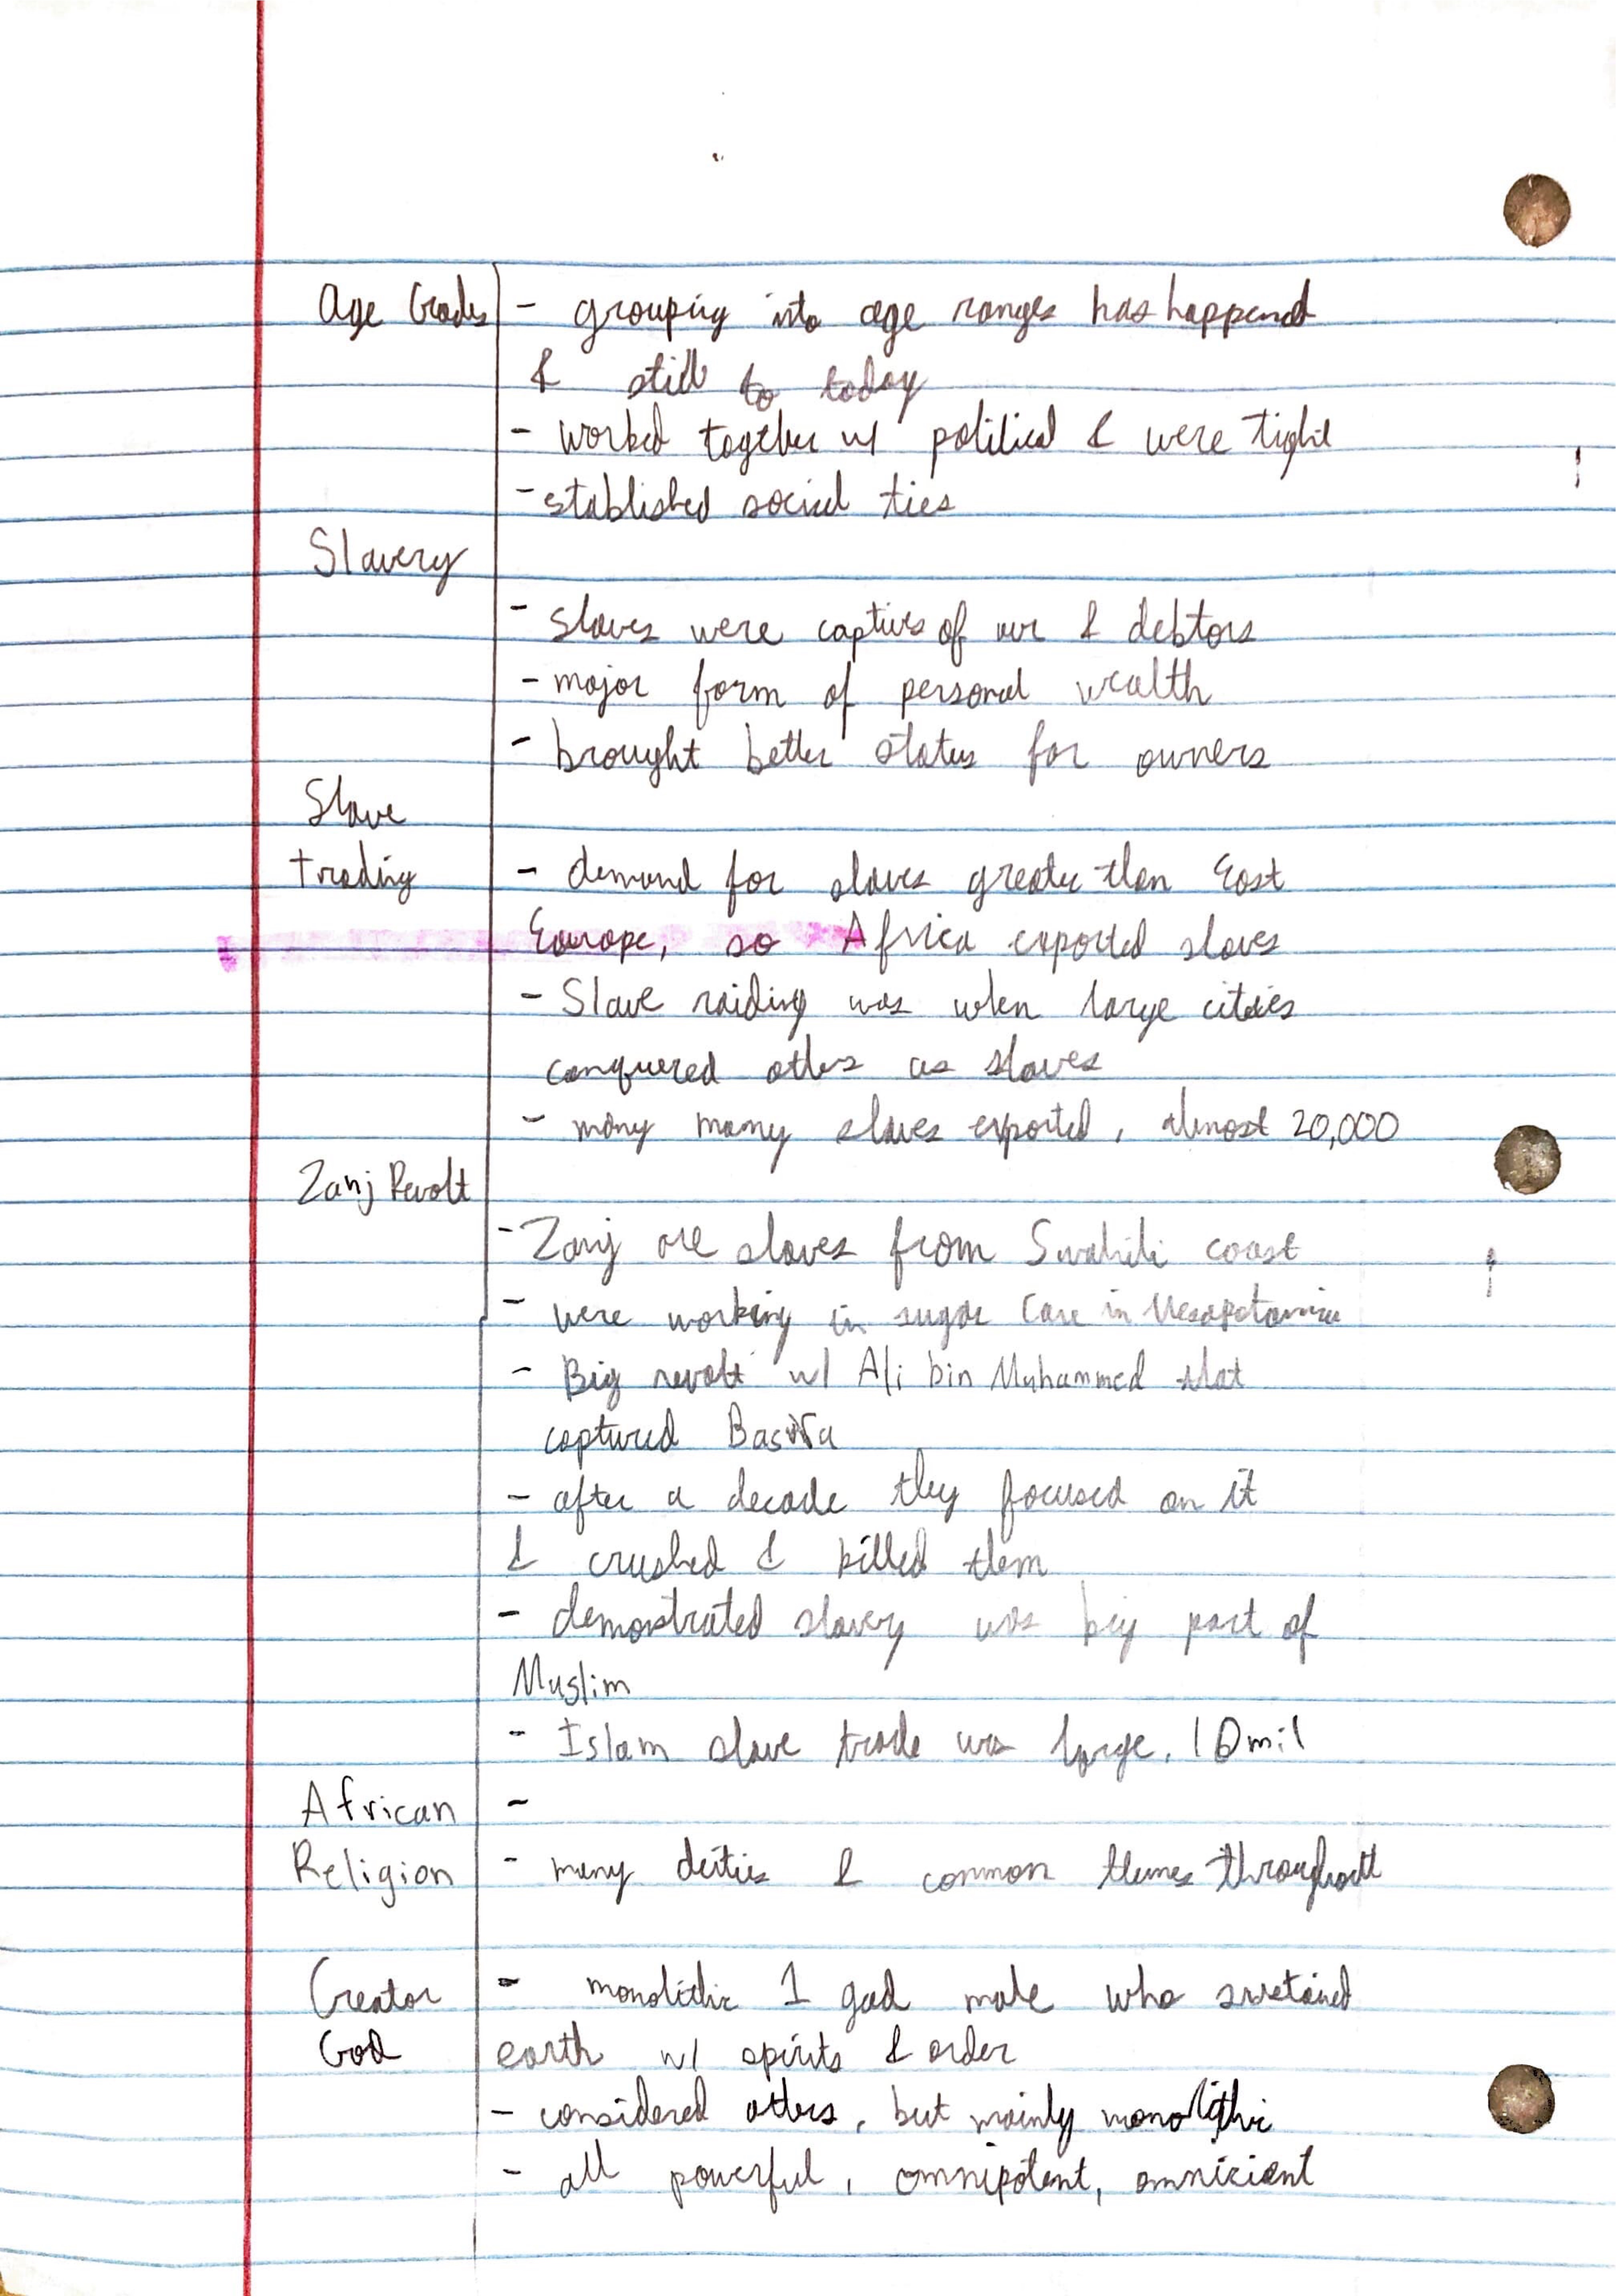 Age Grades - grouping into age ranges has happend
& still to today
- worked together w/ political & were tight
- established social ties
Slavery
- slaves were captives of war & debtors
- major form of personal wealth
- brought better status for owners
Slave
trading - demand for slaves greater than East
Europe, so Africa exported slaves
- Slave raiding was when large cities
conquered others as slaves
- many many slaves exported, almost 20,000
Zanj Revolt
- Zanj are slaves from Swahili coast
- were working in sugar Cane in Mesopotamia
- Big revolt w/ Ali bin Muhammed that
captured Basra
- after a decade they focused on it
& crushed & killed them
- demonstrated slavery was big part of
Muslim
- Islam slave trade was large, 10mil
African -
Religion - many deities & common themes throughout
Creator - monolithic 1 god male who sustained
God earth w/ spirits & order
- considered others, but mainly monolithic
- all powerful, omnipotent, omnicient